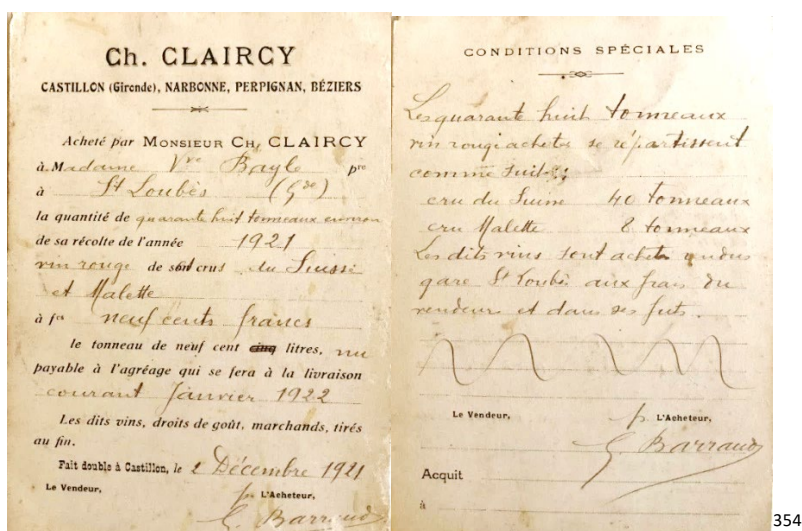 Ch. CLAIRCY
CASTILLON (Gironde), NARBONNE, PERPIGNAN, BÉZIERS
Acheté par MONSIEUR CH. CLAIRCY
à Madame Vve Bayle pre
à St Loubès (Gde)
la quantité de quarante huit tonneaux environ
de sa récolte de l'année 1921
vin rouge de crus du Suisse
et Malette
à fcs neuf cents francs
le tonneau de neuf cent cinq litres, nu
payable à l'agréage qui se fera à la livraison
courant Janvier 1922
Les dits vins, droits de goût, marchands, tirés
au fin.
Fait double à Castillon, le 2 Décembre 1921
Le Vendeur, pr L'Acheteur,
G. Barraud
CONDITIONS SPÉCIALES
Les quarante huit tonneaux
vin rouge achetés se répartissent
comme suit:
cru du 40 tonneaux
cru Malette 8 tonneaux
Les dits vins sont achetés rendus
gare St Loubès aux frais du
vendeur et dans ses futs.
Le Vendeur, pr L'Acheteur,
G. Barraud
Acquit
à
354